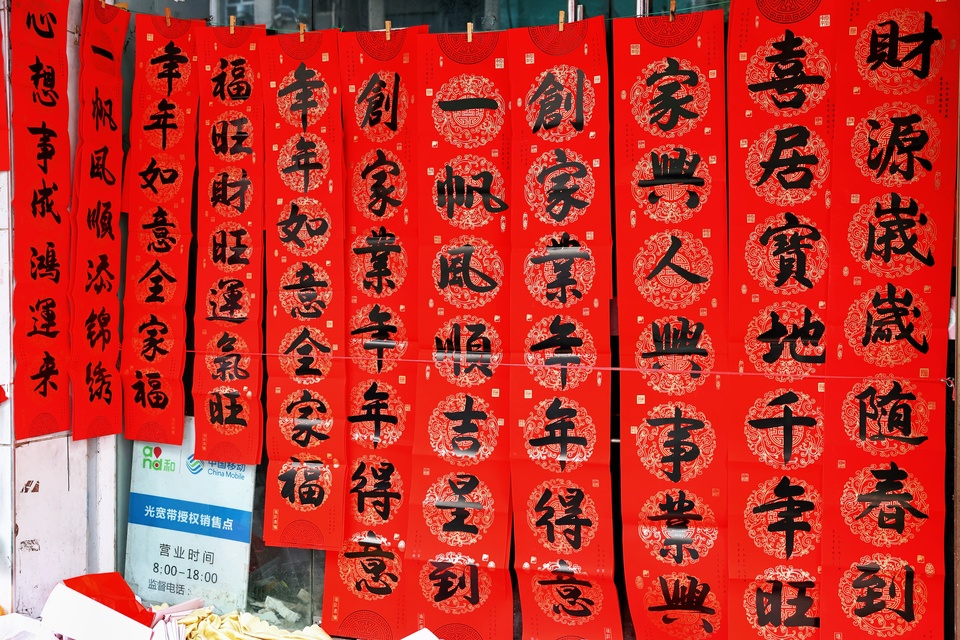 心想事成鴻運来
一帆风順添錦绣
年年如意全家福
福旺財旺運氣旺
年年如意全家福
創家業年年得意
一帆风順吉呈到
創家業年年得意
家興人興事業興
喜居寳地千年旺
财源歲歲随春到
and和
中国移动
China Mobile
光宽带授权销售点
营业时间
8:00-18:00
监督电话: